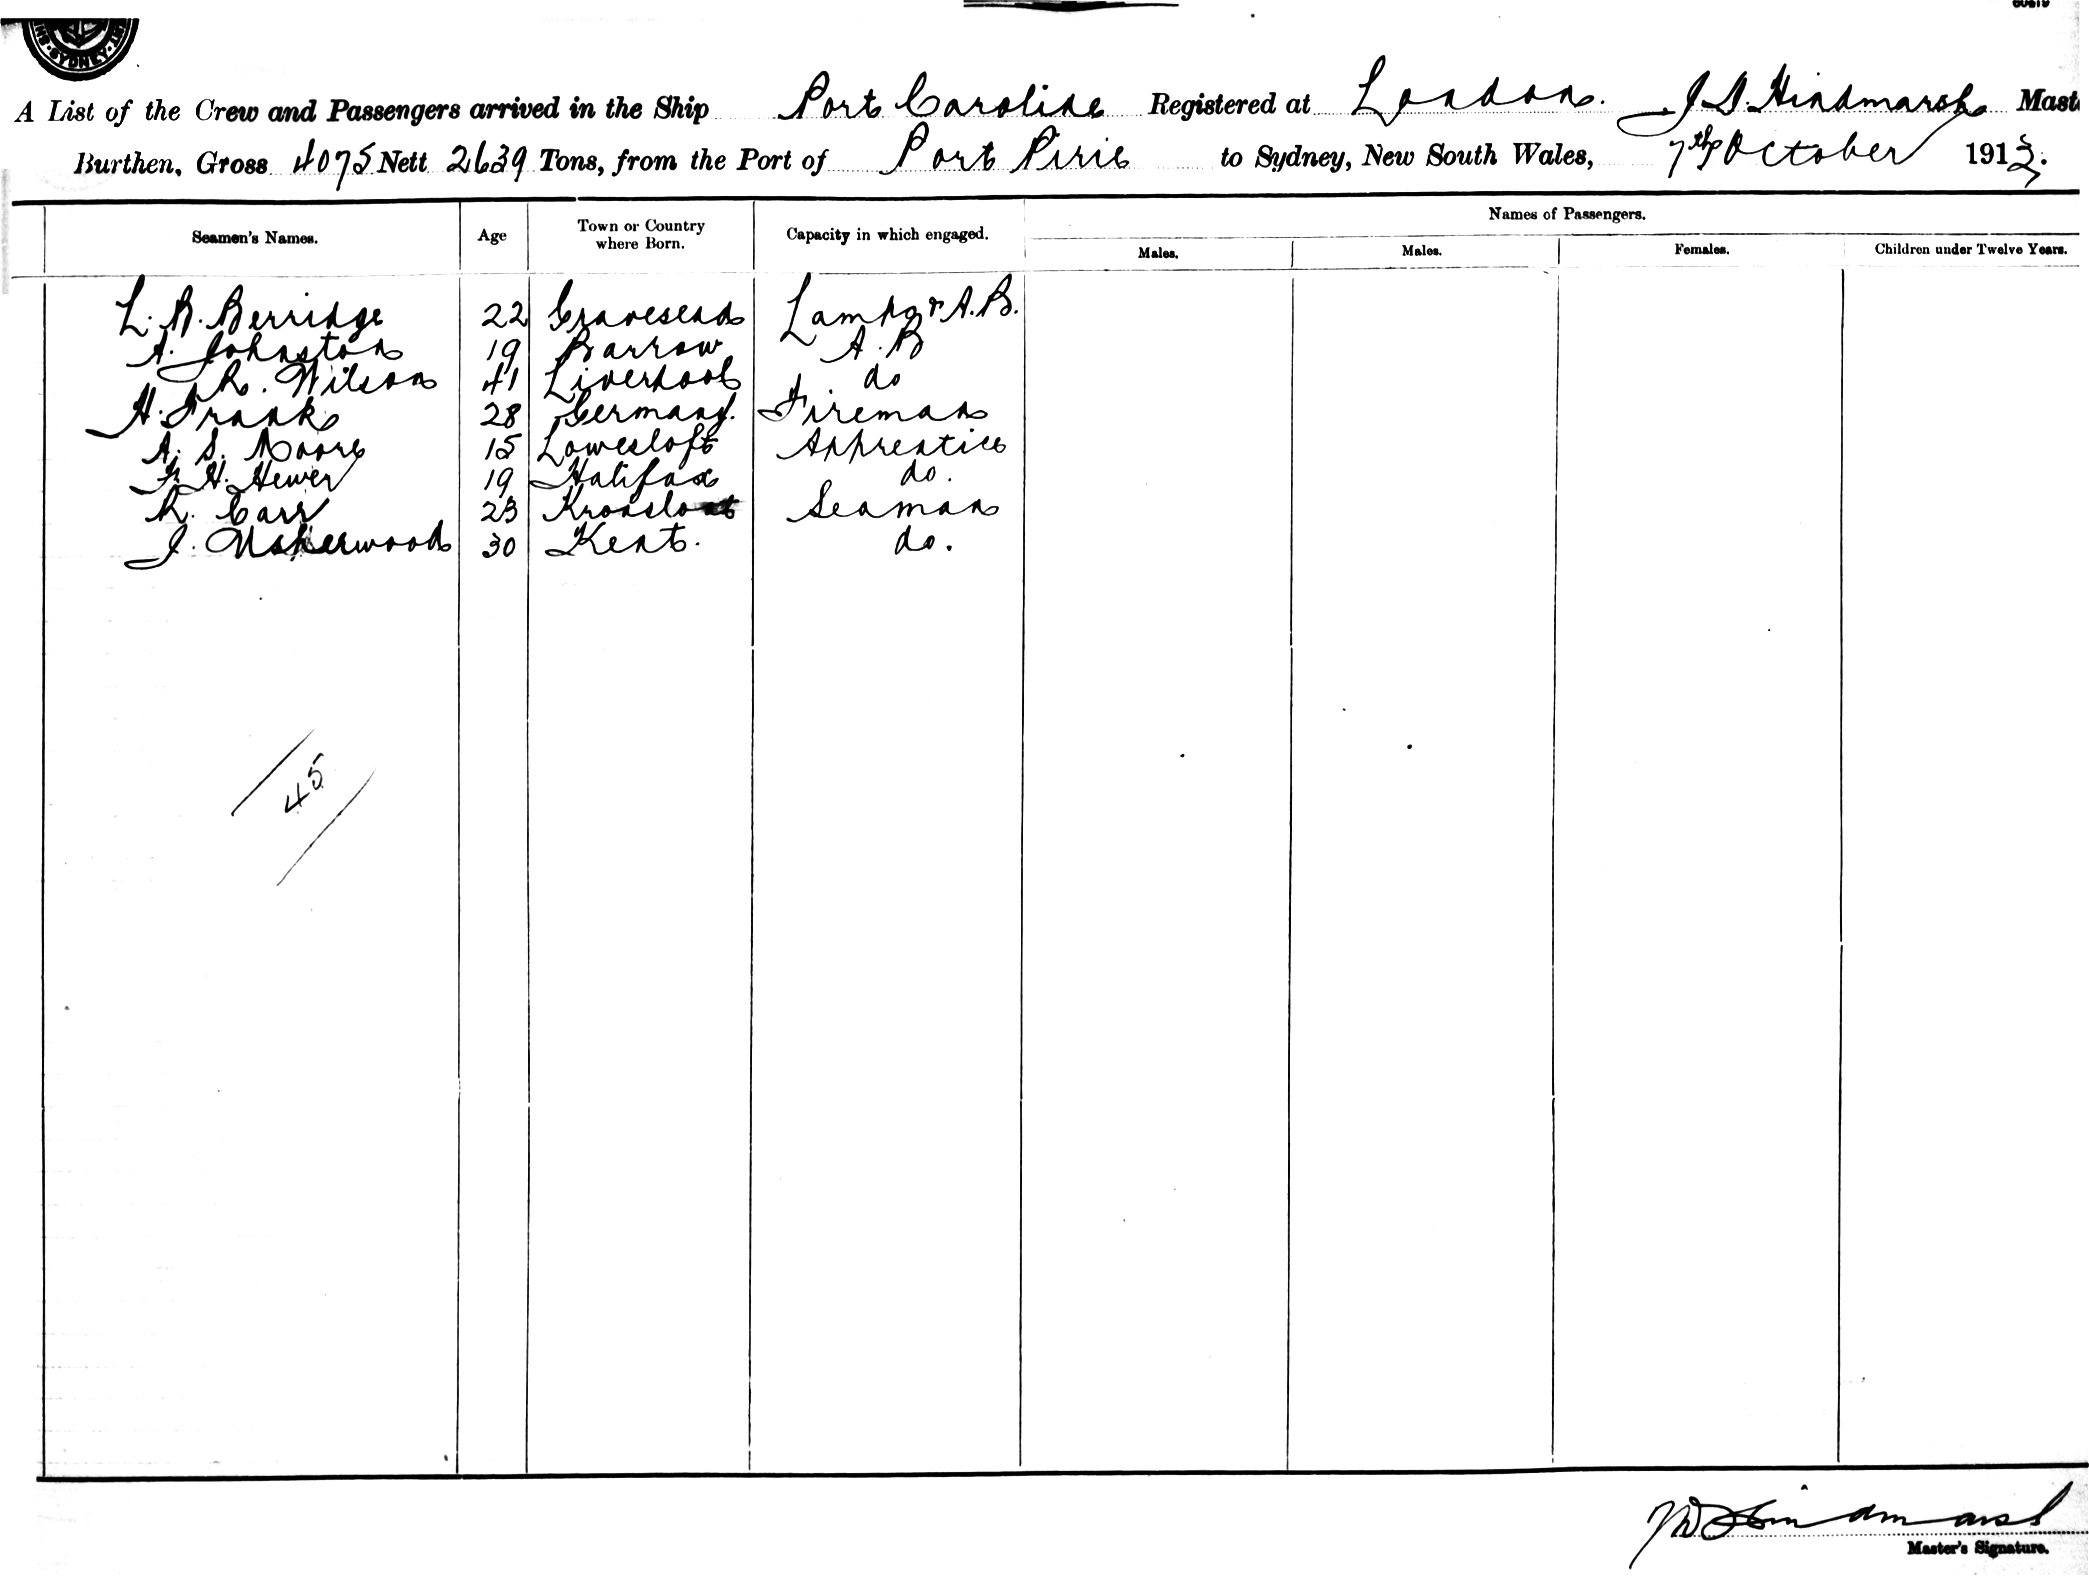 SYDNEY
A List of the Crew and Passengers arrived in the Ship Port Caroline Registered at London. J D. Hindmarsh Mast
Burthen, Gross 4075 Nett 2639 Tons, from the Port of Port Pirie to Sydney, New South Wales, 7th October 1913.
Seamen's Names. Age Town or Country where Born. Capacity in which engaged. Names of Passengers.
Males. Males. Females. Children under Twelve Years.
L. R. Berridge 22 Gravesend Lamps & A.B.
A. Johnston 19 Barrow A.B
R. Wilson 41 Liverpool do
H. Frank 28 Germany. Fireman
A. S. Moore 15 Lowestoft Apprentice
F. H. Hewer 19 Halifax do.
R. Carr 23 Seaman
J. Usherwood 30 Kent. do.
45
Hindmarsh
Master's Signature.